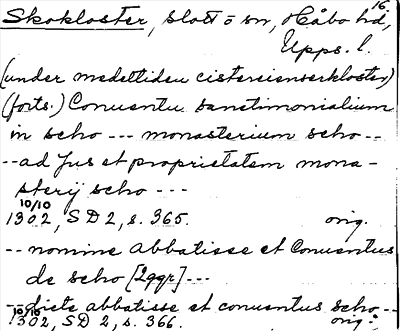 16.
Skokloster, slott o sn, Håbo hd,
Upps. l.
(under medeltiden cistercienserkloster)
(forts.) Conuentu sanctimonialium
in scho --- monasterium scho --
-- ad Jus et proprietatem mona-
sterij scho ---
10/10
1302, SD 2, s. 365. orig.
-- nomine abbatisse et Conuentus
de scho [2ggr] ---
-- dicte abbatisse et conuentus scho --
10/10
1302, SD 2, s. 366. orig.